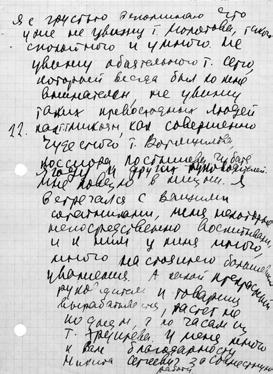 Я с грустью вспоминаю что
уже не увижу т. Молотова, такого
спокойного и умного. Не
увижу обаятельного т. Сего,
который всегда был ко мне
внимателен не увижу
таких превосходных людей
12. как совершенно
чудесного т. Ворошилова,
и других руководителей.
Мне повезло в жизни. Я
встречался с вашими
соратниками, меня некоторые
непосредственно воспитывали,
и к ним у меня много,
много настоящего большого
уважения. А какой прекрасный
руководитель и товарищ
растет не
по дням, а по часам
т. Хрущева. у меня много
благодарности
Никита Сергеевич за совместную
работу